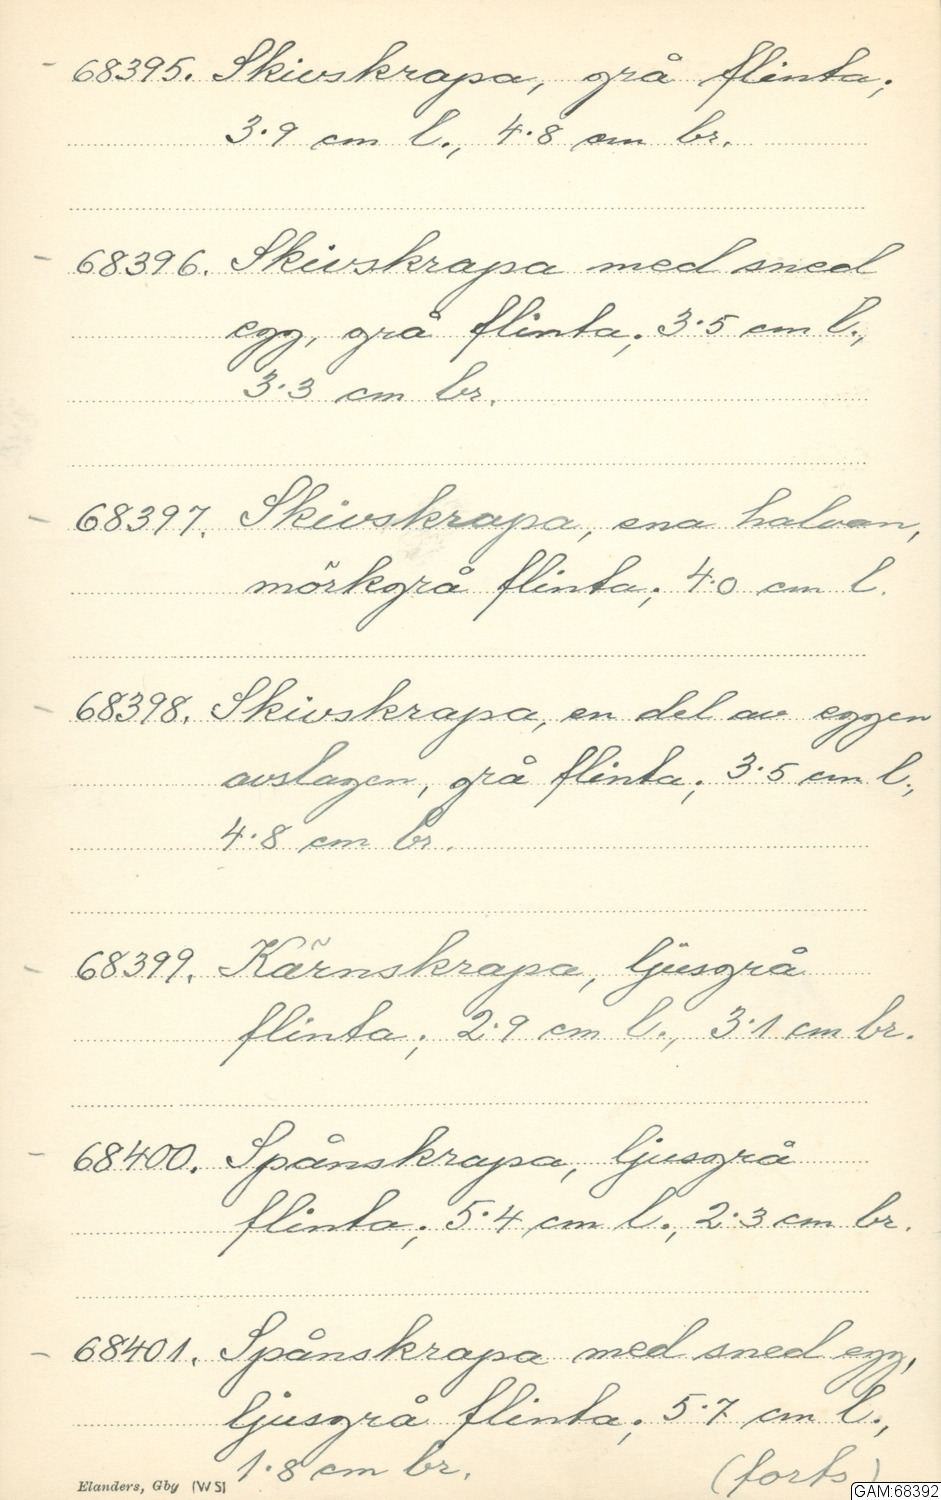 - 68395. Skivskrapa, grå flinta;
3·9 cm l., 4·8 cm br.
- 68396. Skivskrapa med sned
egg, grå flinta; 3·5 cm l.,
3·3 cm br.
- 68397. Skivskrapa, ena halvan,
mörkgrå flinta; 4·0 cm l.
- 68398. Skivskrapa, en del av eggen
avslagen, grå flinta; 3·5 cm l.,
4·8 cm br.
- 68399. Kärnskrapa, ljusgrå
flinta; 2·9 cm l., 3·1 cm br.
- 68400. Spånskrapa, ljusgrå
flinta; 5·4 cm l., 2·3 cm br.
- 68401. Spånskrapa med sned egg,
ljusgrå flinta; 5·7 cm l.,
1·8 cm br. (forts)
Elanders, Gby (WS)
GAM:68392